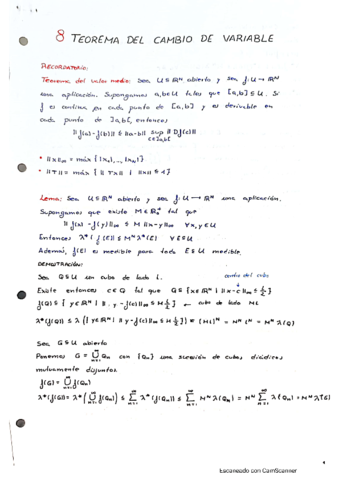 8 TEOREMA DEL CAMBIO DE VARIABLE
RECORDATORIO:
Teorema del valor medio: Sea U⊆ℝᴺ abierto y sea f: U → ℝᴺ
una aplicación. Supongamos a,b∈U tales que [a,b]⊆U. Si
f es continua en cada punto de [a,b] y es derivable en
cada punto de ]a,b[, entonces
‖f(a)-f(b)‖ ≤ ‖a-b‖ sup ‖Df(c)‖
c∈]a,b[
• ‖x‖∞ = máx {|x₁|,..., |xₙ|}
• ‖T‖ = máx {‖Tx‖ | ‖x‖ ≤ 1}
Lema: Sea U⊆ℝᴺ abierto y sea f: U → ℝᴺ una aplicación.
Supongamos que existe M∈ℝ₀⁺ tal que
‖f(x)-f(y)‖∞ ≤ M‖x-y‖∞ ∀x,y∈U
Entonces λ*(f(E)) ≤ Mᴺλ*(E) ∀E⊆U
Además, f(E) es medible para todo E⊆U medible.
DEMOSTRACIÓN:
Sea Q⊆U un cubo de lado L.
centro del cubo
Existe entonces c∈Q tal que Q⊆{x∈ℝᴺ | ‖x-c‖∞ ≤ L/2}
f(Q)⊆{y∈ℝᴺ | ‖y-f(c)‖∞ ≤ M L/2} ← cubo de lado ML
λ*(f(Q)) ≤ λ({y∈ℝᴺ | ‖y-f(c)‖∞ ≤ M L/2}) = (ML)ᴺ = Mᴺ Lᴺ = Mᴺ λ(Q)
Sea G⊆U abierto
Ponemos G = ⋃ₙ₌₁^∞ Qₙ con {Qₙ} una sucesión de cubos diádicos
mutuamente disjuntos.
f(G) = ⋃ₙ₌₁^∞ f(Qₙ)
λ*(f(G)) = λ*(⋃ₙ₌₁^∞ f(Qₙ)) ≤ Σₙ₌₁^∞ λ*(f(Qₙ)) ≤ Σₙ₌₁^∞ Mᴺ λ(Qₙ) = Mᴺ Σₙ₌₁^∞ λ(Qₙ) = Mᴺ λ(G)
Escaneado con CamScanner